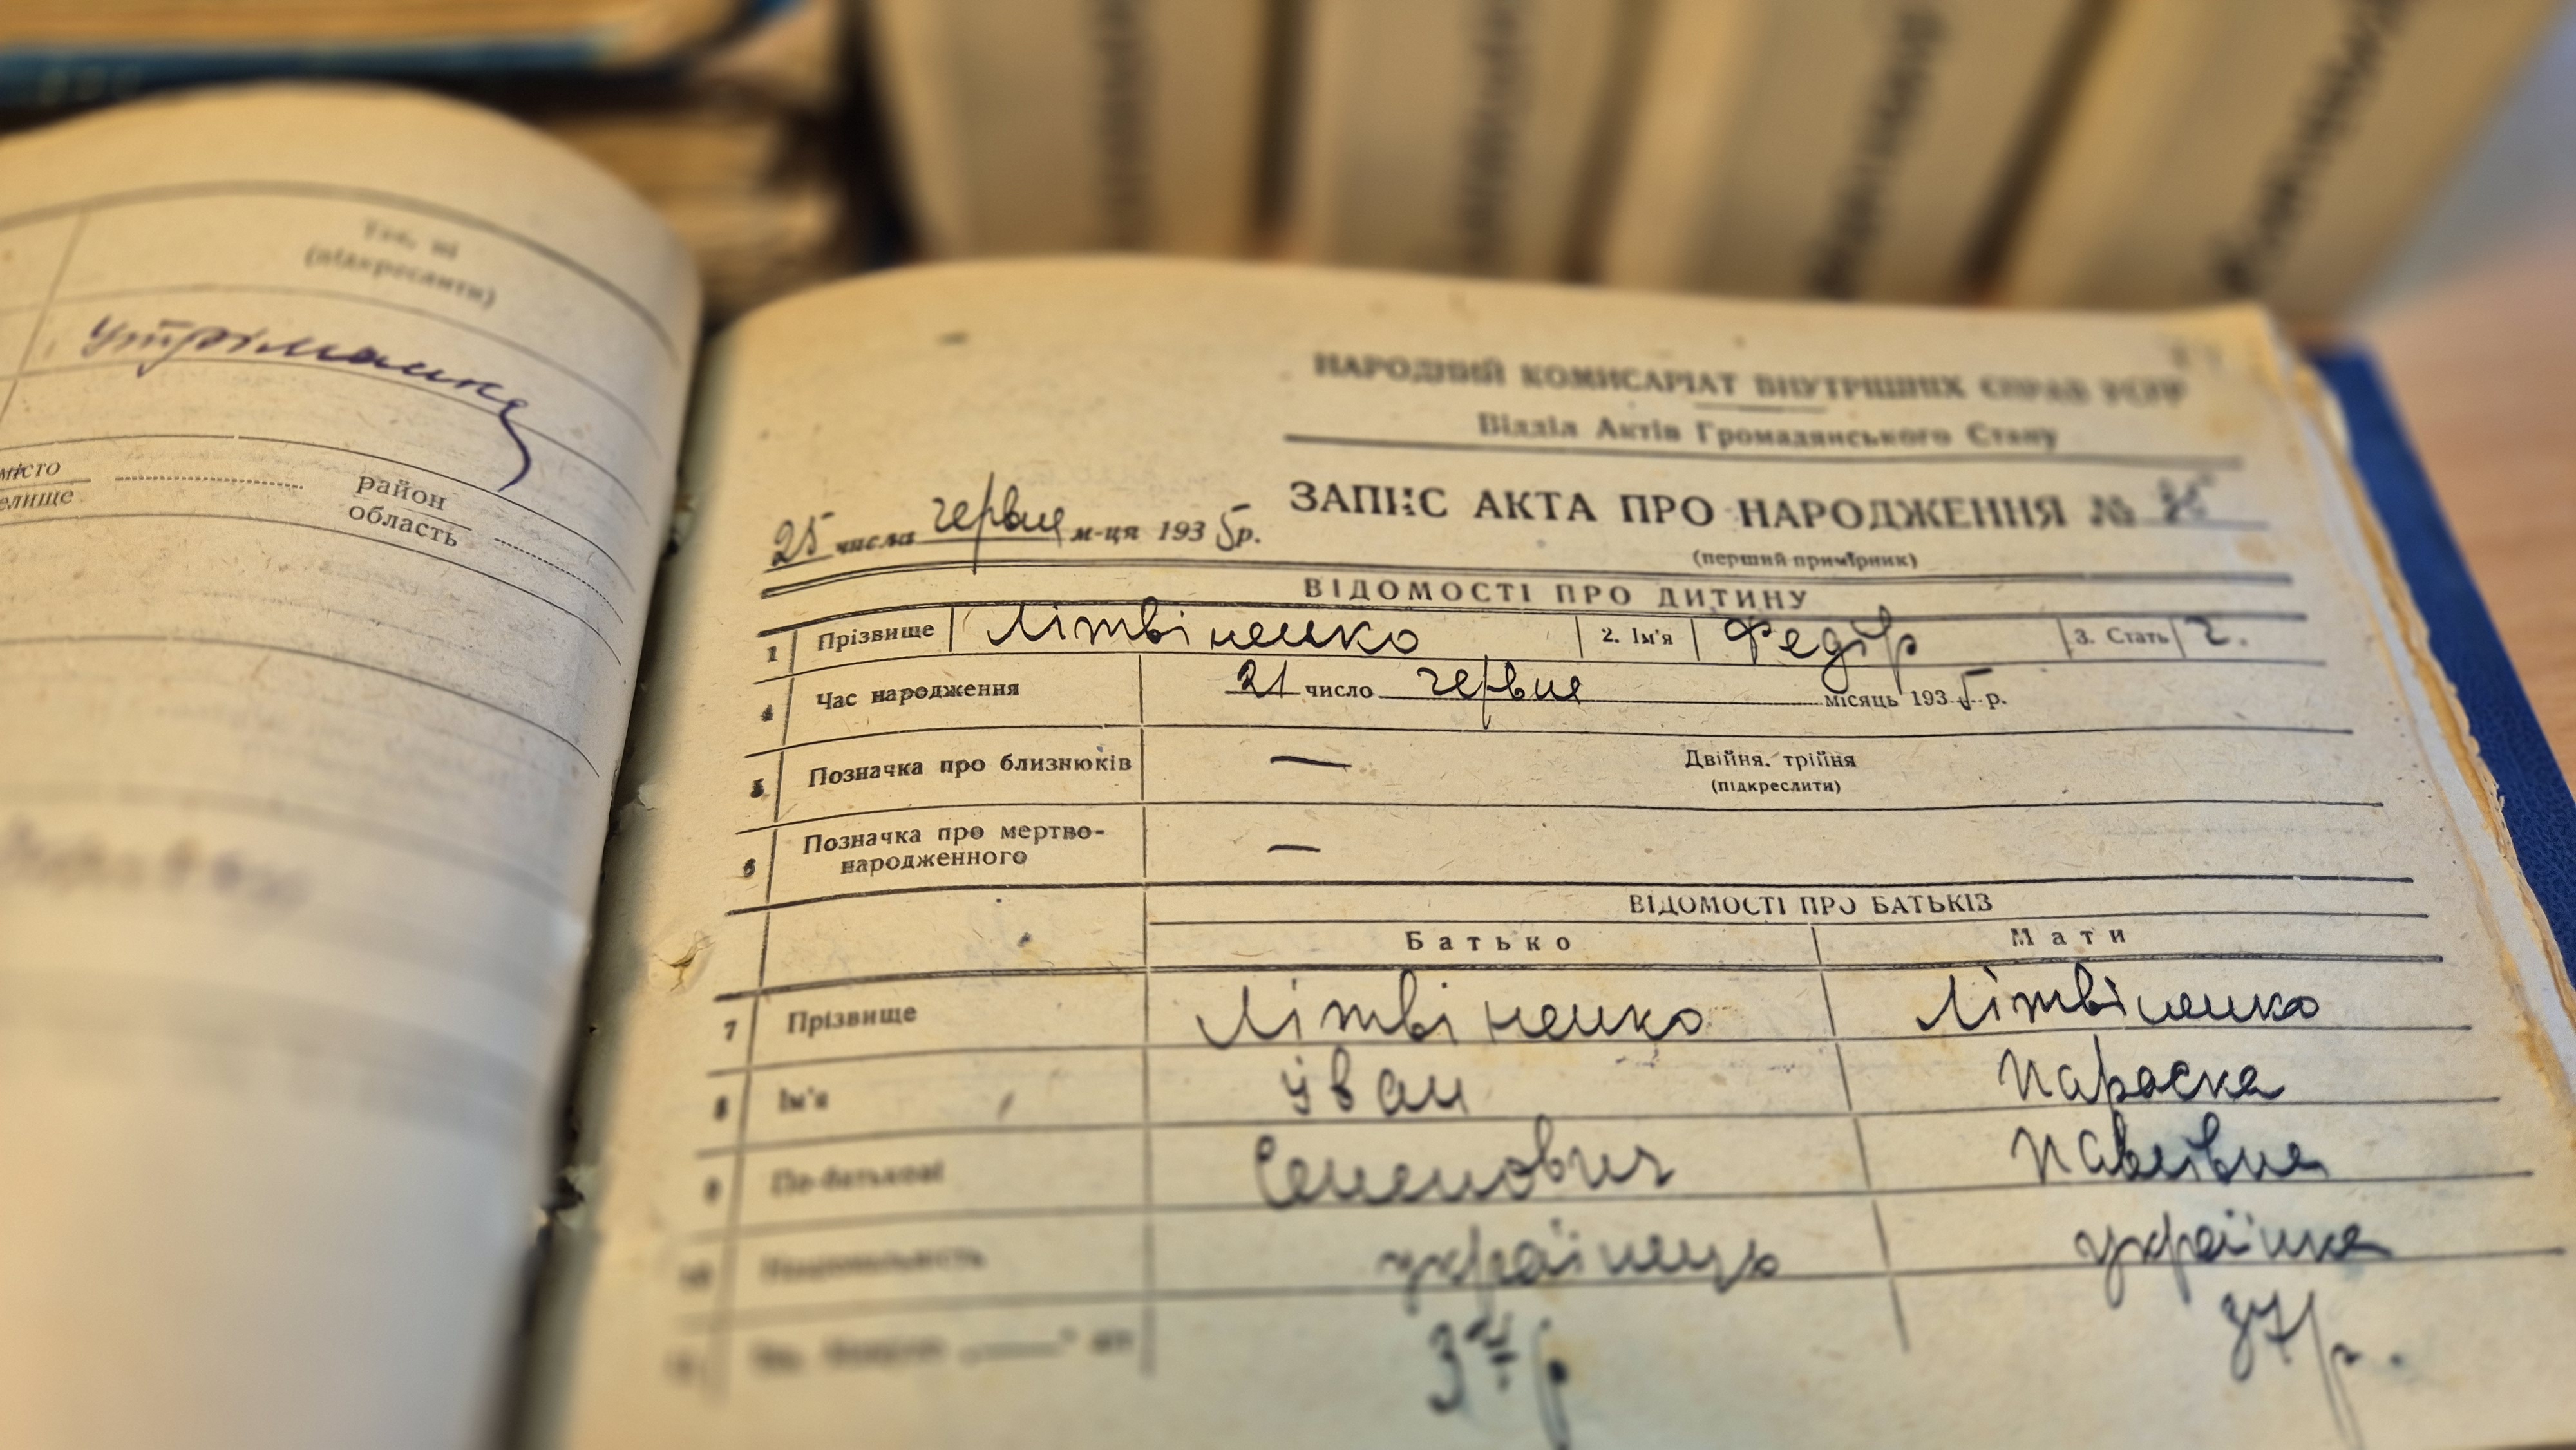 (підкреслити)
утріманка
місто
селище
район
область
НАРОДНИЙ КОМИСАРІАТ ВНУТРІШНІХ СПРАВ УСРР
Відділ Актів Громадянського Стану
25 числа червня м-ця 1935 р.
ЗАПИС АКТА ПРО НАРОДЖЕННЯ №
(перший примірник)
ВІДОМОСТІ ПРО ДИТИНУ
1 Прізвище Літвіненко 2. Ім'я Федір 3. Стать ч.
4 Час народження 21 число червня місяць 1935 р.
5 Позначка про близнюків — Двійня, трійня
(підкреслити)
6 Позначка про мертво-
народженного —
ВІДОМОСТІ ПРО БАТЬКІВ
Батько Мати
7 Прізвище Літвіненко Літвіненко
8 Ім'я Іван Параска
9 По-батькові Семенович Павлівна
10 Національність українець українка
37 р.